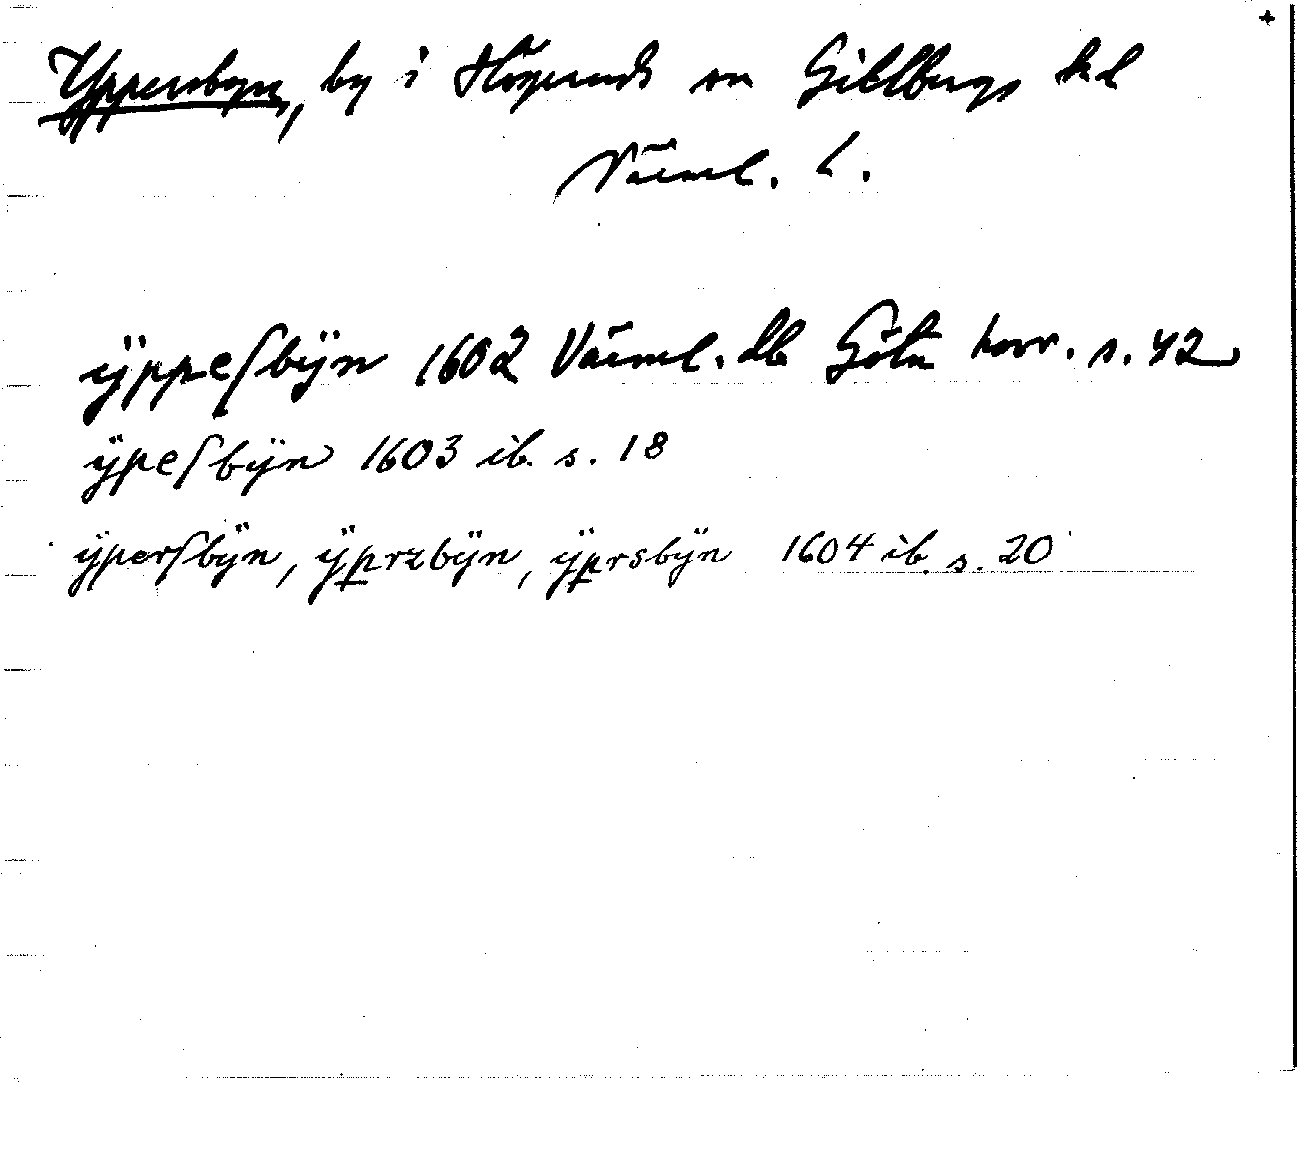 +
Yppersbyn, by i Högeruds sn Gillbergs hd
Värml. l.
ÿppeſbÿn 1602 Värml. db Göta hovr. s. 42
ÿpeſbÿn 1603 ib. s. 18
ÿperſbÿn, ÿprzbÿn, ÿprsbÿn 1604 ib. s. 20